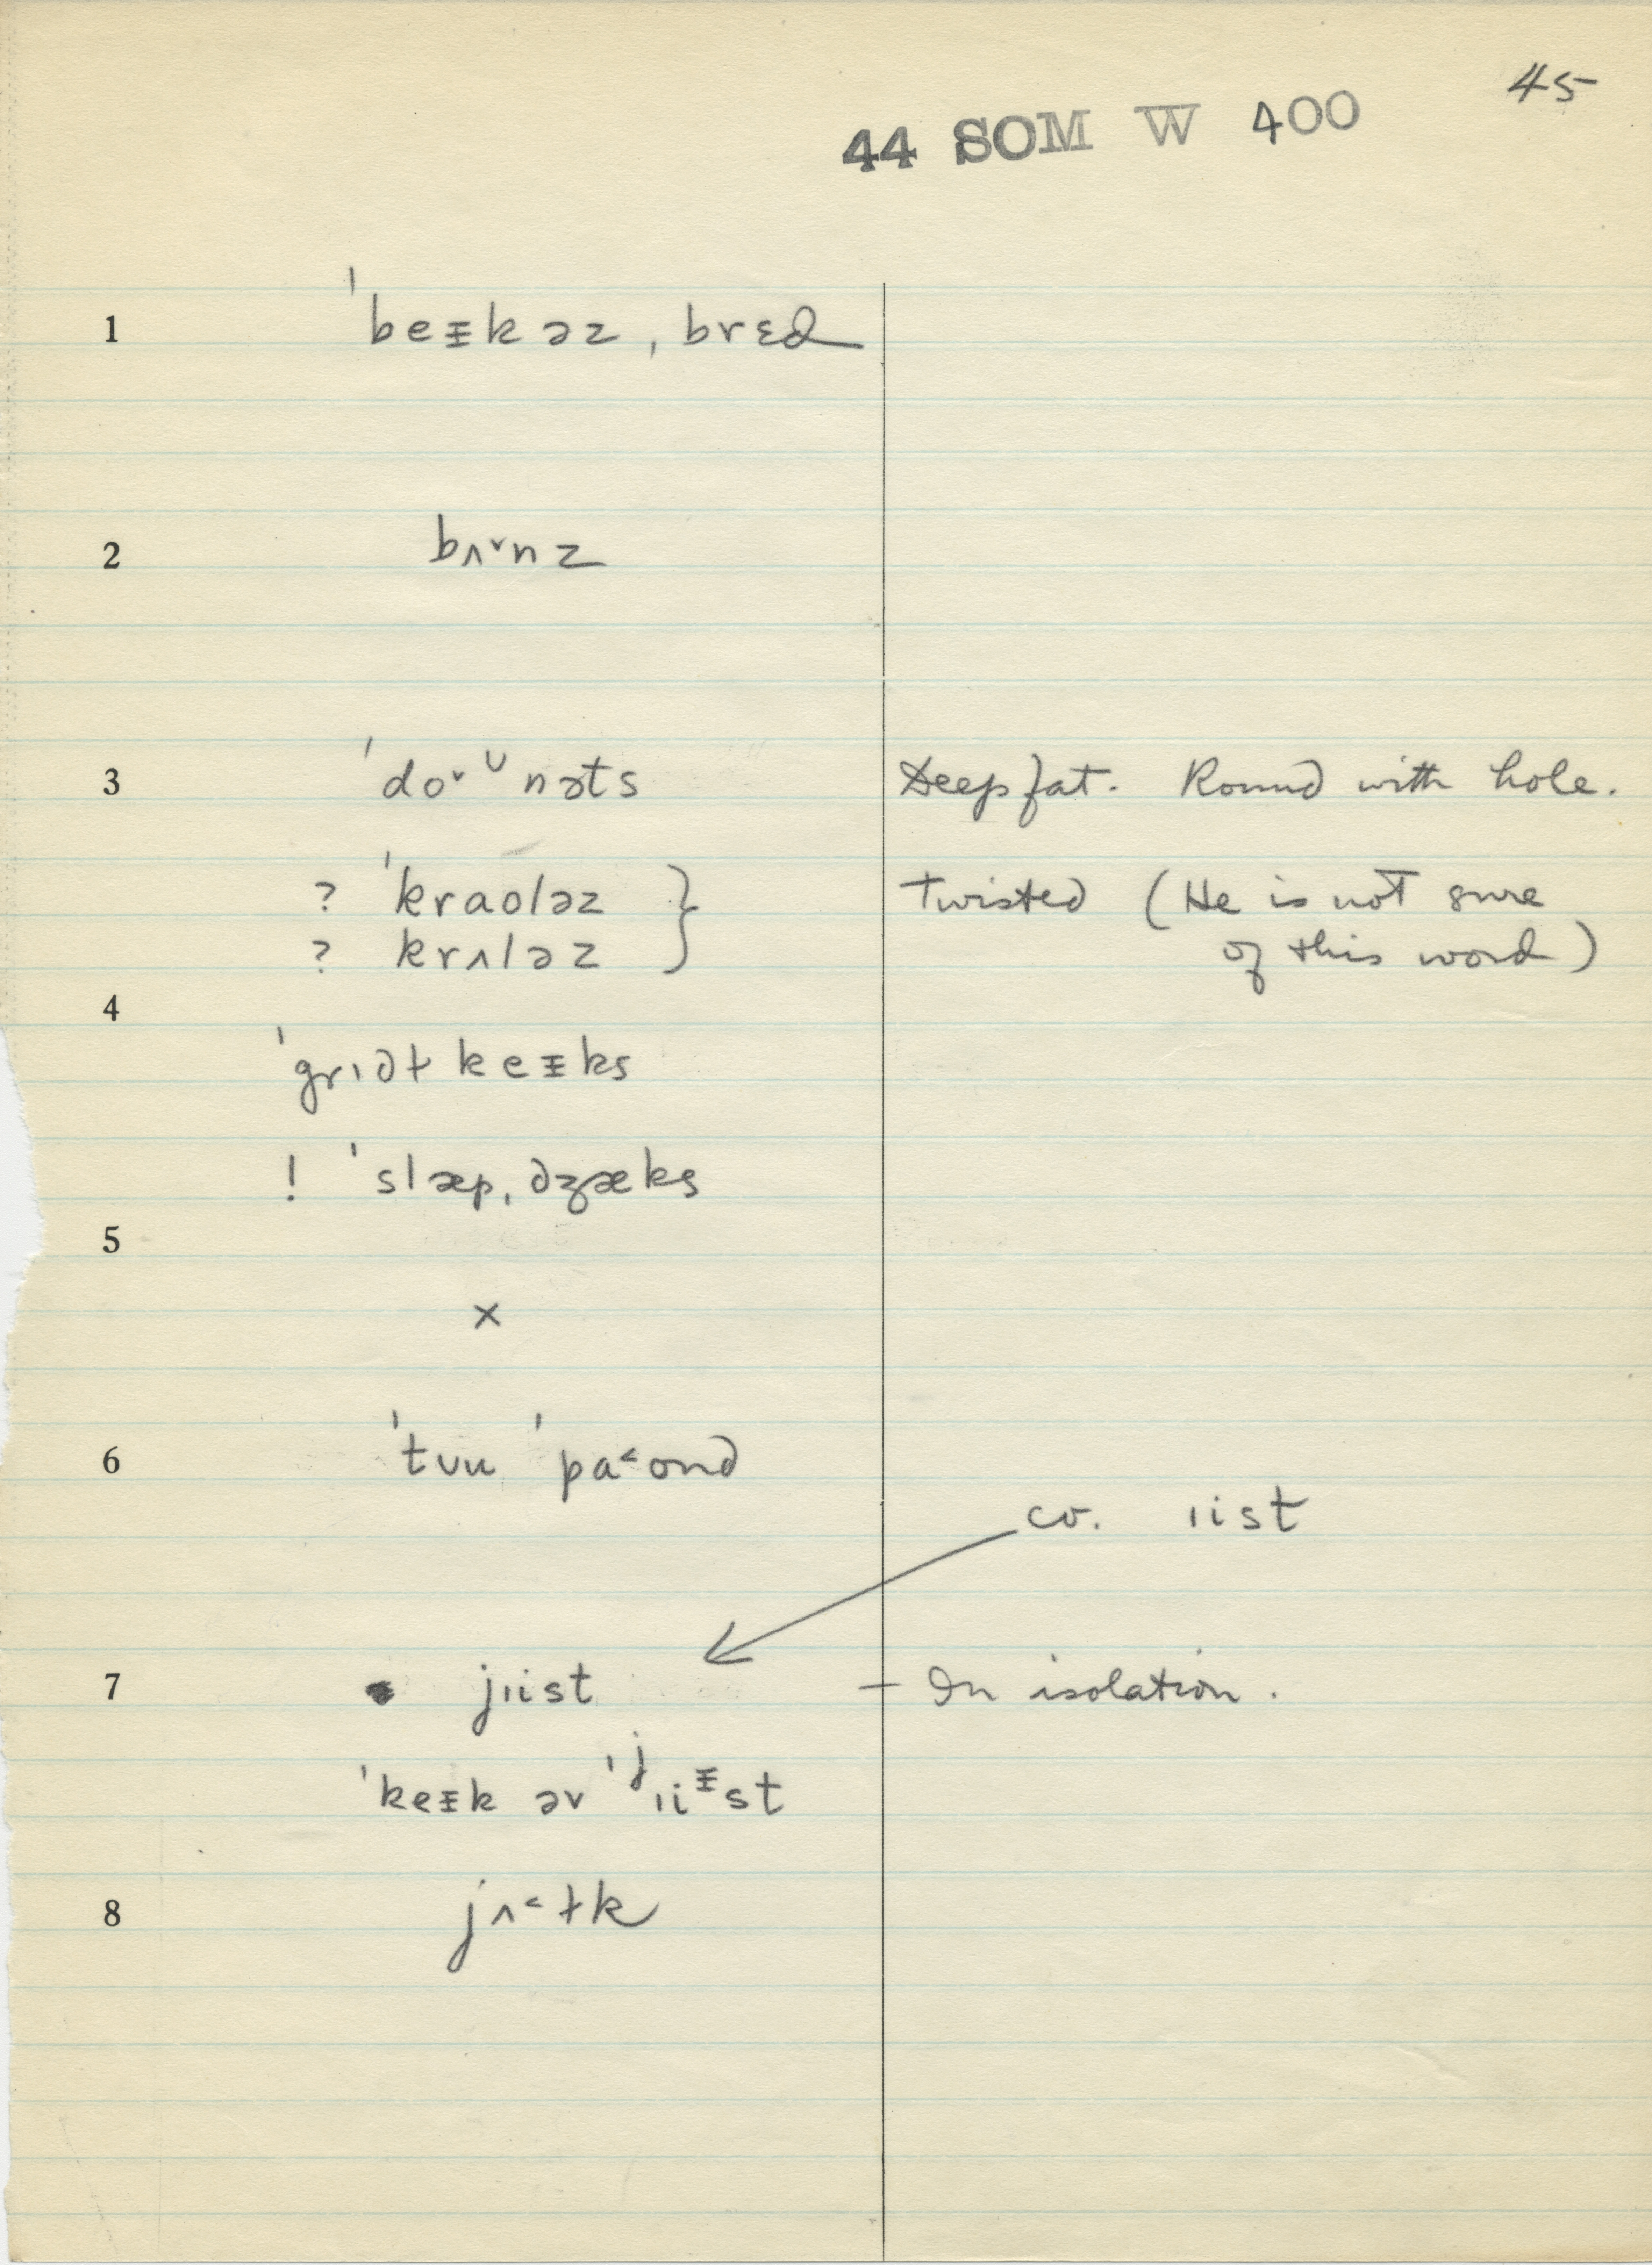 45
44 SOM W 400
1 ˈbeᵻkəz ˌbrɛd
2 bʌ˅nz
3 ˈdo˅ᶷnəts Deep fat. Round with hole.
? ˈkraʊləz } Twisted (He is not sure
? krʌləz of this word)
4
ˈgrɪdɫkeᵻks
! ˈslæpˌdʒæks
5
×
6 ˈtʊu ˈpa˂ʊnd
cv. ɪist
7 jɪist – In isolation.
ˈkeᵻk əv ˈʲɪiᵻst
8 jʌ˂ɫk